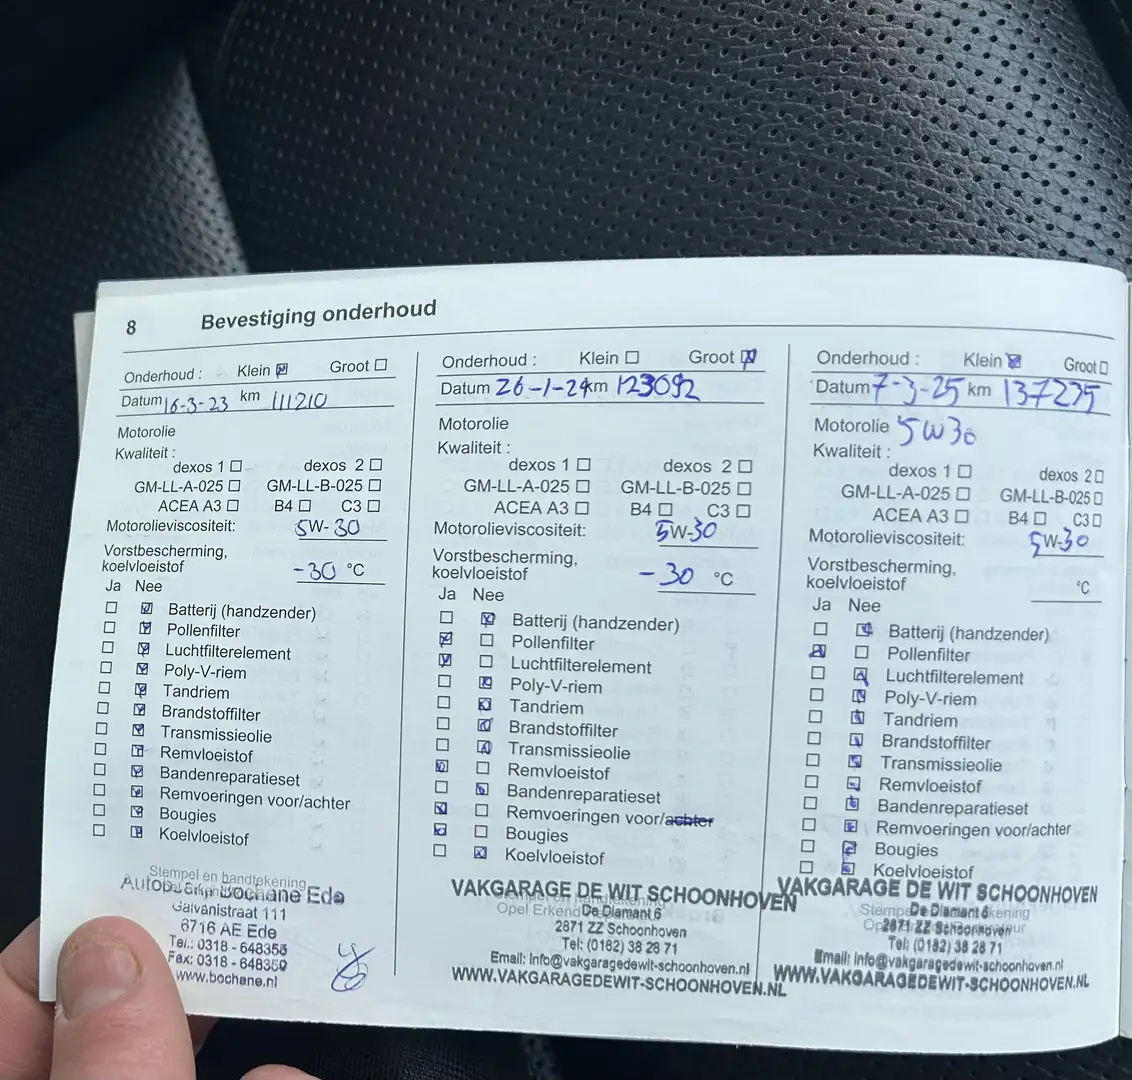 8 Bevestiging onderhoud
Onderhoud : Klein Groot
Datum 16-3-23 km 111210
Motorolie
Kwaliteit :
dexos 1 dexos 2
GM-LL-A-025 GM-LL-B-025
ACEA A3 B4 C3
Motorolieviscositeit: 5W-30
Vorstbescherming,
koelvloeistof -30 °C
Ja Nee
Batterij (handzender)
Pollenfilter
Luchtfilterelement
Poly-V-riem
Tandriem
Brandstoffilter
Transmissieolie
Remvloeistof
Bandenreparatieset
Remvoeringen voor/achter
Bougies
Koelvloeistof
Stempel en handtekening
Bochane Ede
Galvanistraat 111
6716 AE Ede
Tel.: 0318 - 648355
Fax: 0318 - 648350
www.bochane.nl
Onderhoud : Klein Groot
Datum 26-1-24 km 123092
Motorolie
Kwaliteit :
dexos 1 dexos 2
GM-LL-A-025 GM-LL-B-025
ACEA A3 B4 C3
Motorolieviscositeit: 5W-30
Vorstbescherming,
koelvloeistof -30 °C
Ja Nee
Batterij (handzender)
Pollenfilter
Luchtfilterelement
Poly-V-riem
Tandriem
Brandstoffilter
Transmissieolie
Remvloeistof
Bandenreparatieset
Remvoeringen voor/achter
Bougies
Koelvloeistof
VAKGARAGE DE WIT SCHOONHOVEN
Opel Erkend De Diamant 6
2871 ZZ Schoonhoven
Tel: (0182) 38 28 71
Email: Info@vakgaragedewit-schoonhoven.nl
WWW.VAKGARAGEDEWIT-SCHOONHOVEN.NL
Onderhoud : Klein Groot
Datum 7-3-25 km 137275
Motorolie 5W30
Kwaliteit :
dexos 1 dexos 2
GM-LL-A-025 GM-LL-B-025
ACEA A3 B4 C3
Motorolieviscositeit: 5W-30
Vorstbescherming,
koelvloeistof °C
Ja Nee
Batterij (handzender)
Pollenfilter
Luchtfilterelement
Poly-V-riem
Tandriem
Brandstoffilter
Transmissieolie
Remvloeistof
Bandenreparatieset
Remvoeringen voor/achter
Bougies
Koelvloeistof
VAKGARAGE DE WIT SCHOONHOVEN
De Diamant 6
2871 ZZ Schoonhoven
Tel: (0182) 38 28 71
Email: Info@vakgaragedewit-schoonhoven.nl
WWW.VAKGARAGEDEWIT-SCHOONHOVEN.NL